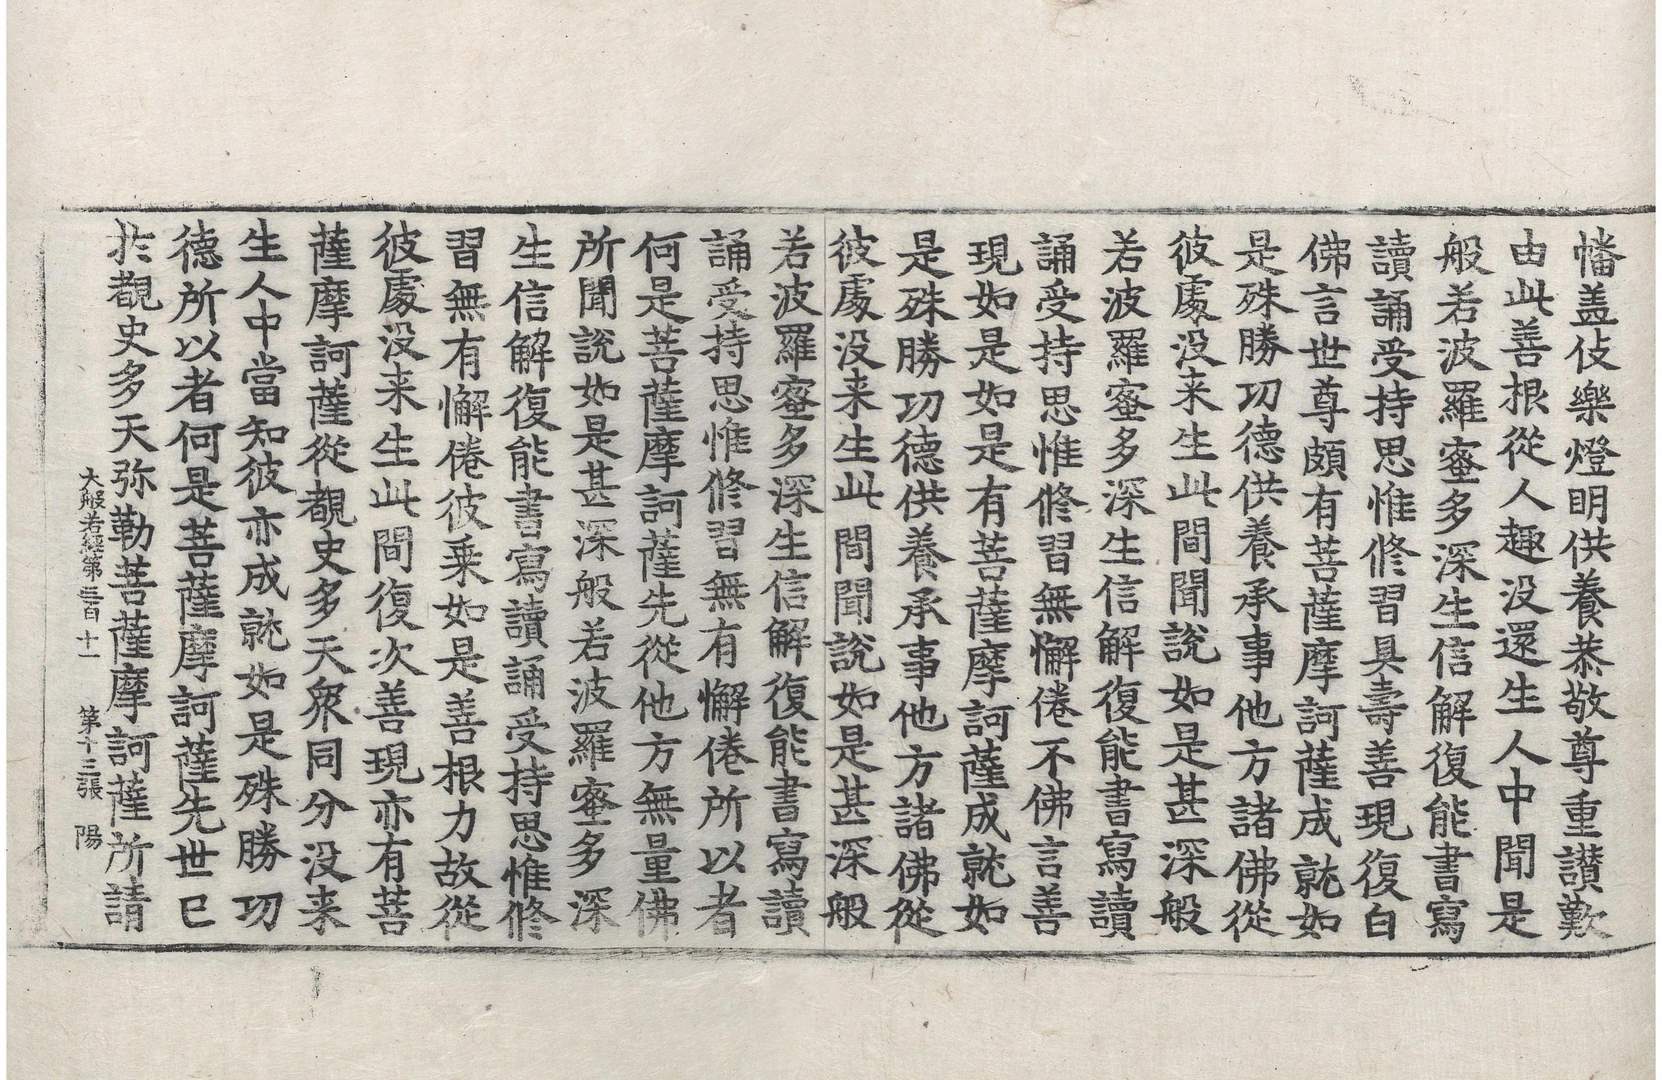 幡盖伎樂燈明供養恭敬尊重讃歎
由此善根從人趣没還生人中聞是
般若波羅蜜多深生信解復能書寫
讀誦受持思惟修習具壽善現復白
佛言世尊頗有菩薩摩訶薩成就如
是殊勝功德供養承事他方諸佛從
彼處没来生此間聞說如是甚深般
若波羅蜜多深生信解復能書寫讀
誦受持思惟修習無懈倦不佛言善
現如是如是有菩薩摩訶薩成就如
是殊勝功德供養承事他方諸佛從
彼處没来生此間聞說如是甚深般
若波羅蜜多深生信解復能書寫讀
誦受持思惟修習無有懈倦所以者
何是菩薩摩訶薩先從他方無量佛
所聞說如是甚深般若波羅蜜多深
生信解復能書寫讀誦受持思惟修
習無有懈倦彼乗如是善根力故從
彼處没来生此間復次善現亦有菩
薩摩訶薩從覩史多天衆同分没来
生人中當知彼亦成就如是殊勝功
德所以者何是菩薩摩訶薩先世已
扵覩史多天弥勒菩薩摩訶薩所請
大般若經第三百十一 第十三張 陽